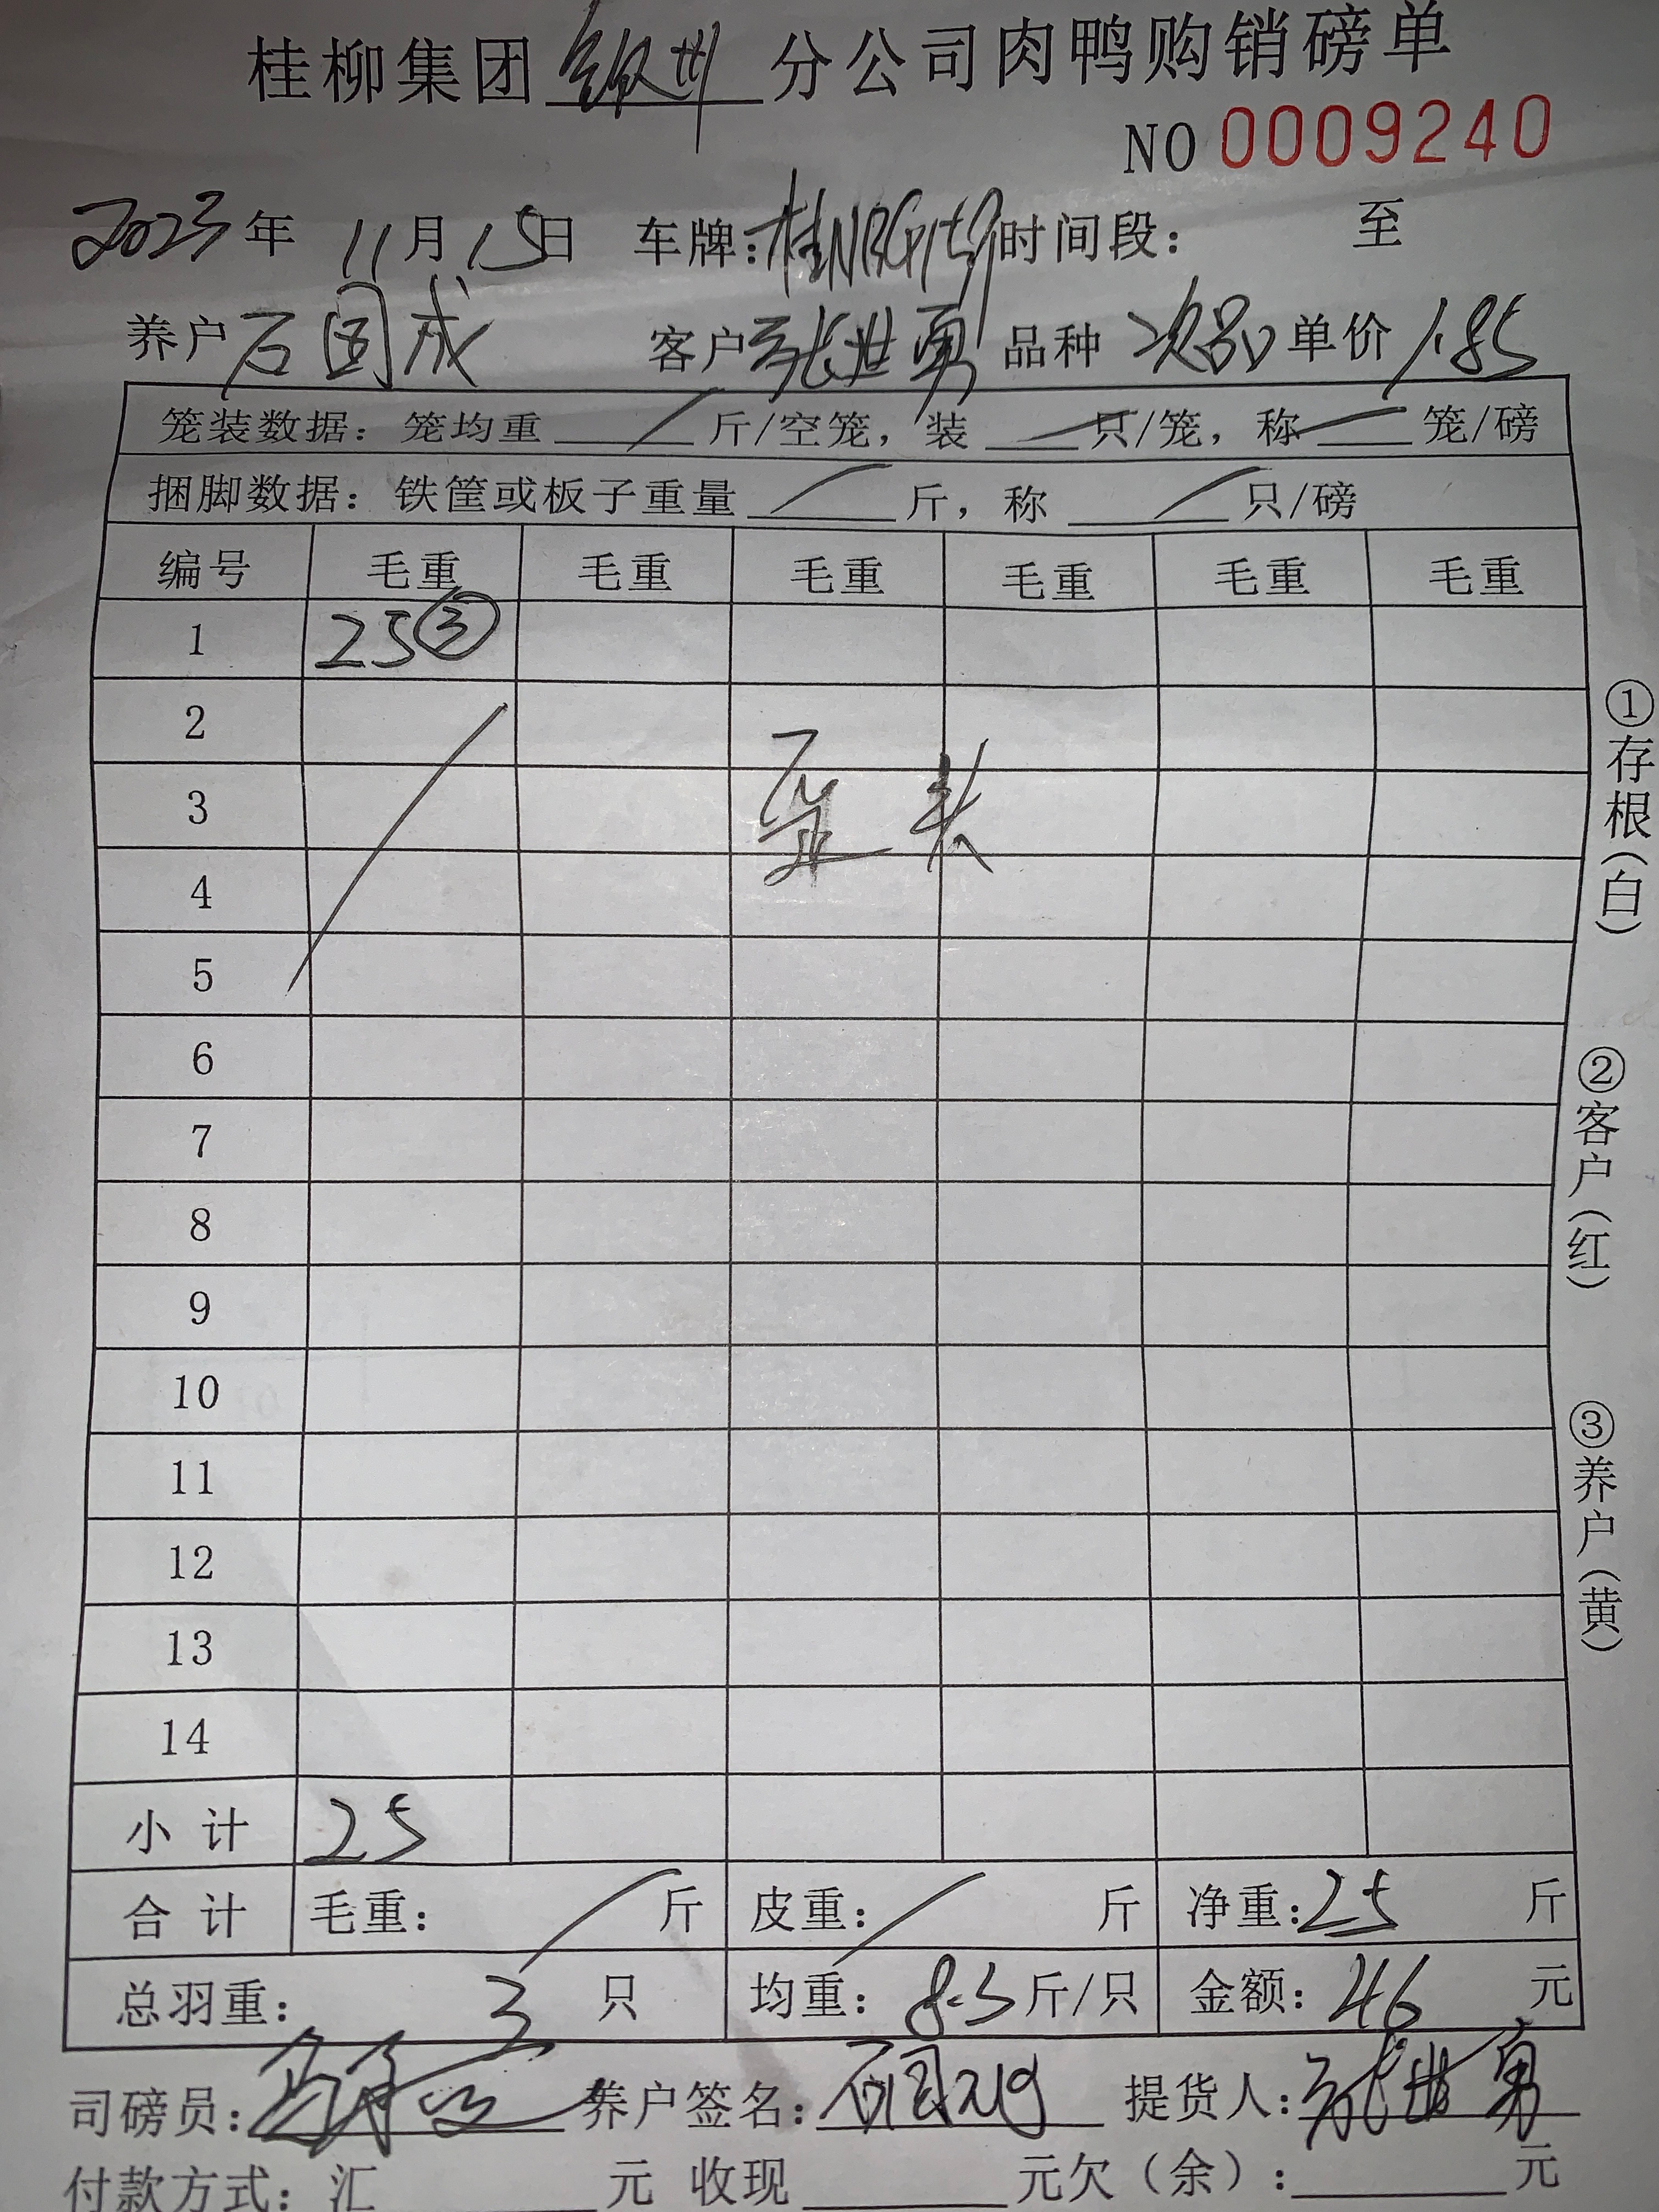 桂柳集团钦州分公司肉鸭购销磅单
NO 0009240
2023年 11月15日 车牌:桂N 时间段: 至
养户 石国成 客户 张世勇 品种 次品 单价 1.85
笼装数据: 笼均重 斤/空笼, 装 只/笼, 称 笼/磅
捆脚数据: 铁筐或板子重量 斤, 称 只/磅
编号 毛重 毛重 毛重 毛重 毛重 毛重
1 25③
2
3 歪头
4
5
6
7
8
9
10
11
12
13
14
小计 25
合计 毛重: 斤 皮重: 斤 净重:25 斤
总羽重: 3 只 均重: 8.3 斤/只 金额: 46 元
司磅员: 养户签名: 石国成 提货人: 张世勇
付款方式: 汇 元 收现 元欠(余): 元
①存根(白)
②客户(红)
③养户(黄)